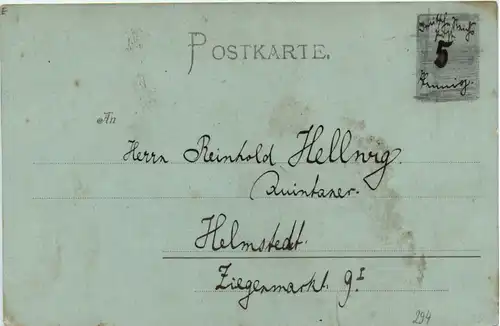 POSTKARTE.
Deutsch. Reichs
5
Pfennig.
An
Herrn Reinhold Hellwig
Quintaner.
Helmstedt.
Ziegenmarkt. 9 I
294